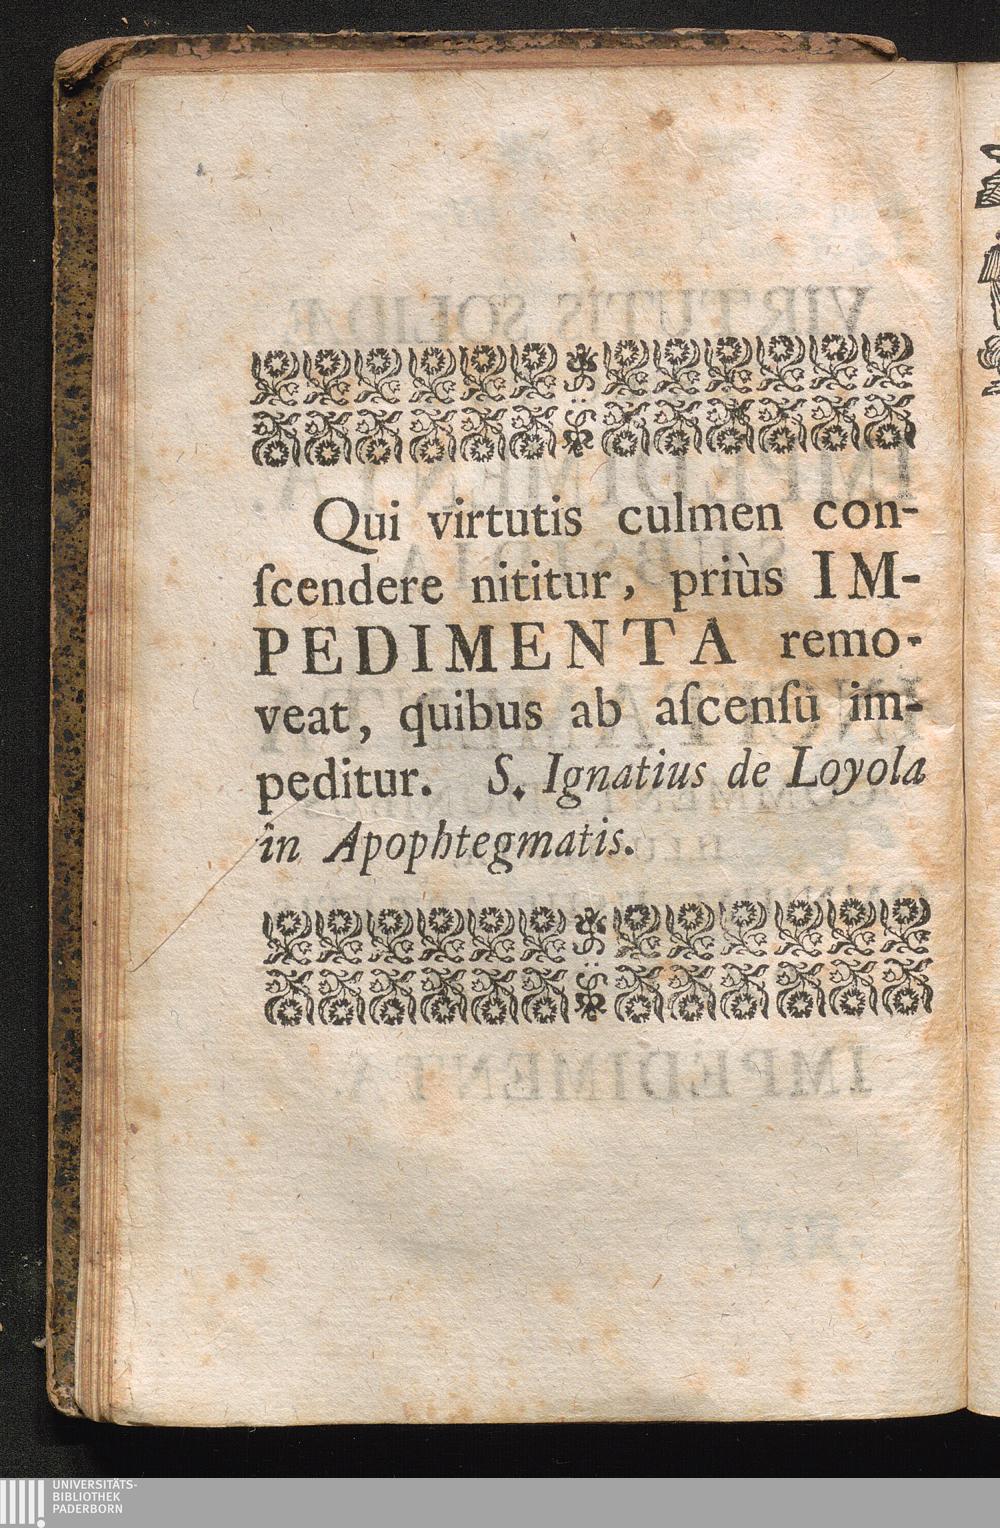 Qui virtutis culmen con-
ſcendere nititur, priùs IM-
PEDIMENTA remo-
veat, quibus ab aſcenſu im-
peditur. S. Ignatius de Loyola
in Apophtegmatis.
UNIVERSITÄTS-
BIBLIOTHEK
PADERBORN